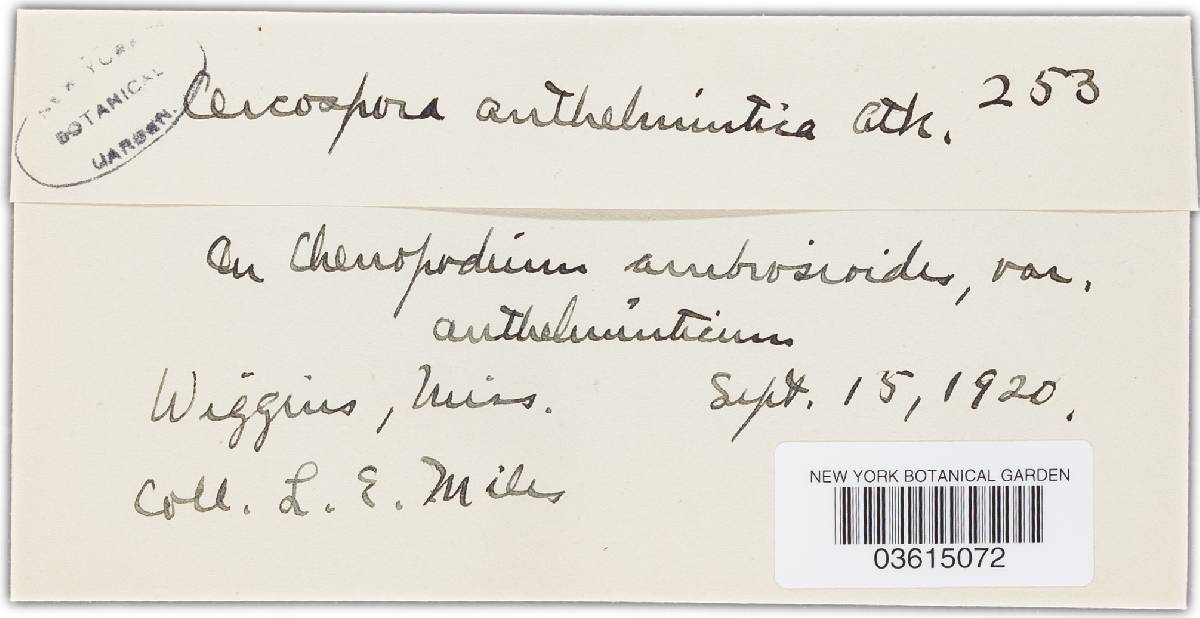 NEW YORK
BOTANICAL
GARDEN.
Cercospora anthelmintica Atk. 253
On Chenopodium ambrosioides, var.
anthelminticum
Wiggins, Miss. Sept. 15, 1920.
Coll. L. E. Miles
NEW YORK BOTANICAL GARDEN
03615072